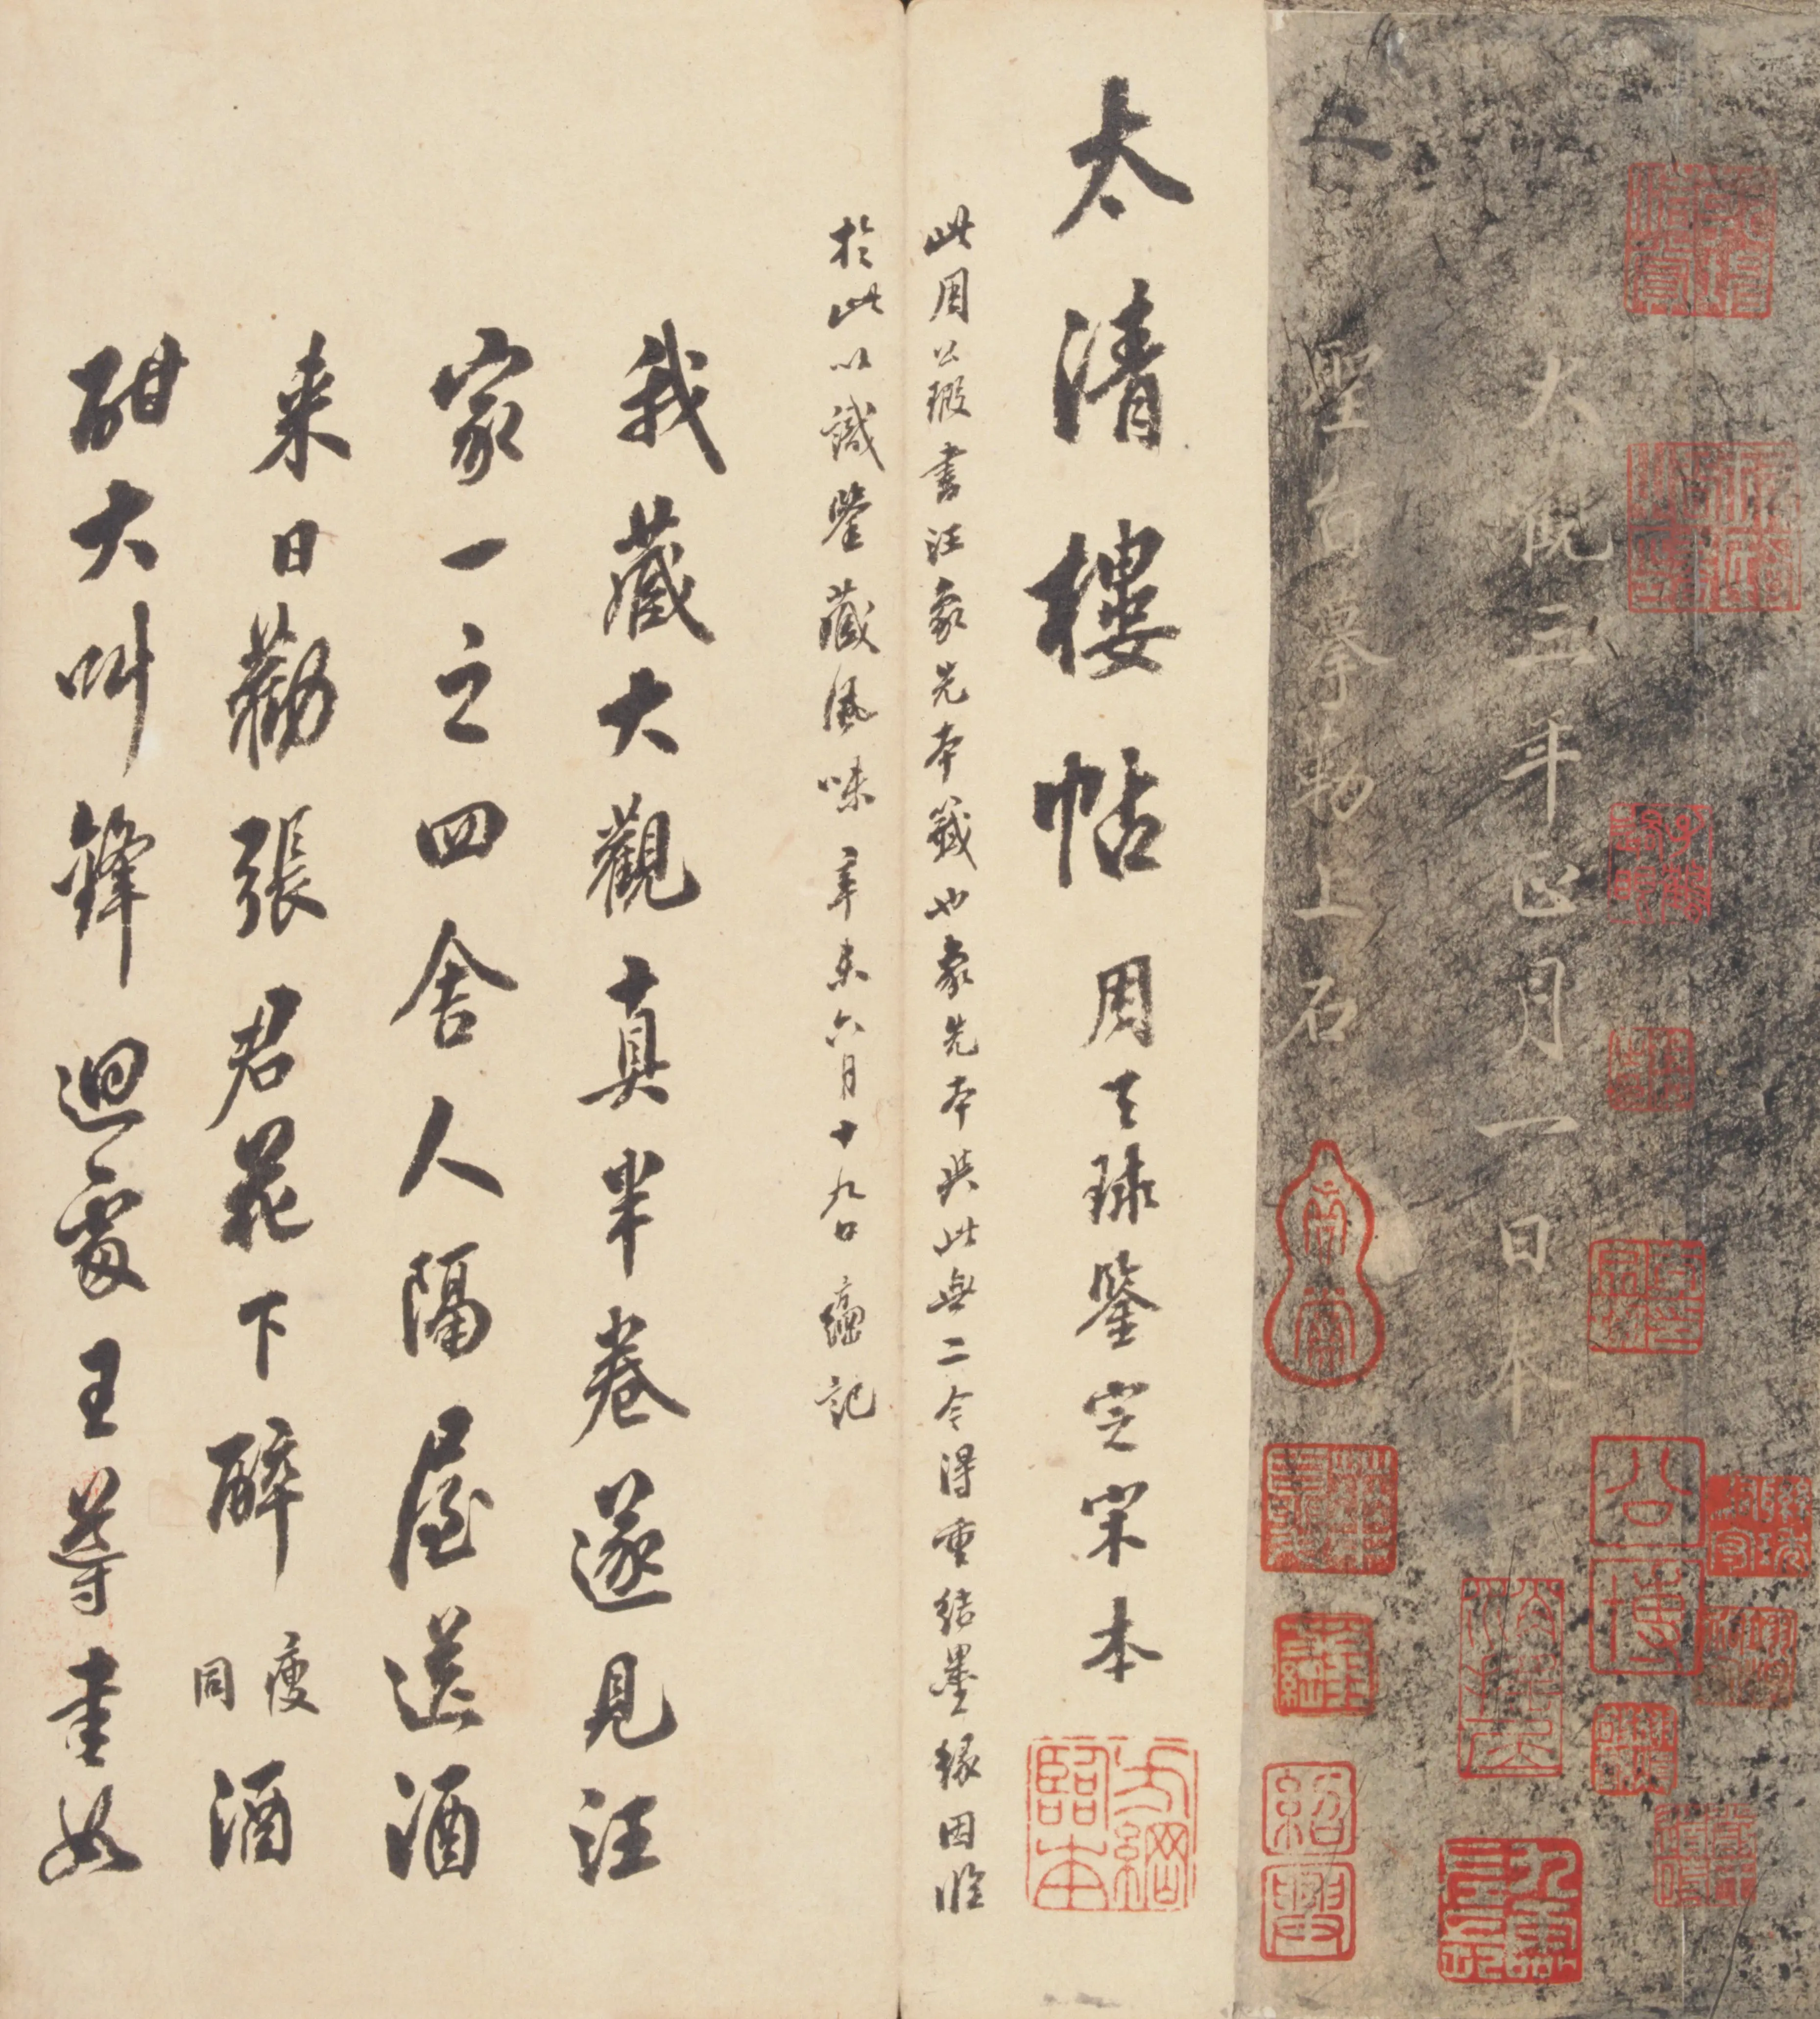 大觀三年正月一日奉
聖旨摹勒上石
太清樓帖周天球鑒定宋本
此周公瑕書汪象先本籤也象先本與此無二今得重結墨緣因臨
於此以識鑒藏風味辛未六月十九日方綱記
我藏大觀十真半卷遂見汪
家一之四舍人隔屋送酒
來日勸張君花下醉瘦同酒
酣大叫鋒迴處王蕁書如
方綱臨本
公博